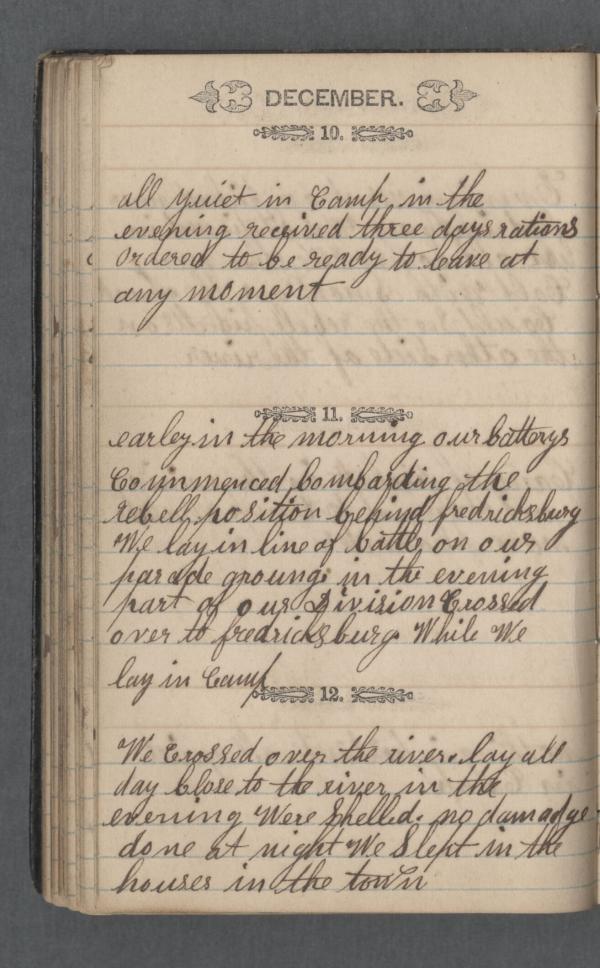 DECEMBER.
10.
all quiet in Camp, in the
evening received three days rations
Ordered to be ready to leave at
any moment
11.
earley in the morning our batterys
Commenced bombarding the
Rebell position behind fredricksburg
We lay in line of battle on our
parade grounge in the evening
part of our Division Crossed
over to fredricksburg While We
lay in Camp
12.
We Crossed over the river. lay all
day Close to the river in the
evening Were Shelled. no damadge
done at night We Slept in the
houses in the town